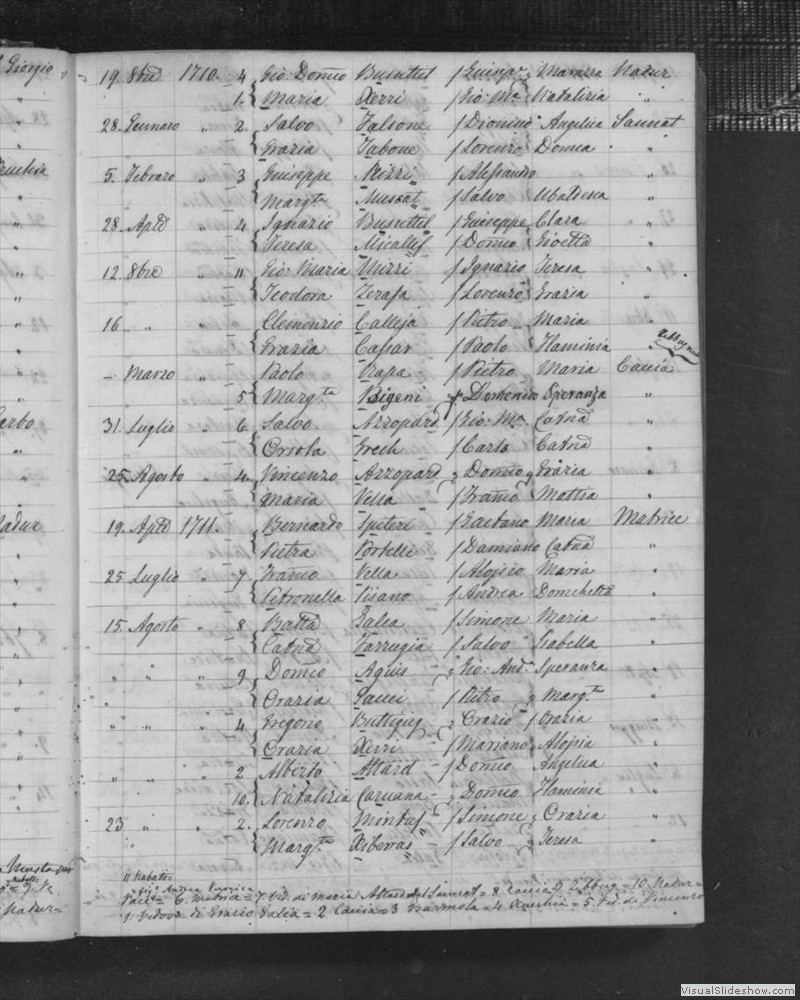 Giorgio
19. 8bre 1710. 4 Gio: Domco Busuttil / Giusepe Marazza Nadur
1. Maria Xerri / Gio: Ma Natalizia "
28. Gennaro " 2. Salvo Falsone / Dionino Angelica Sannat
Grazia Tabone / Lorenzo Domca "
5. Febraro " 3 Giuseppe Mizzi / Alessandro "
Margta Muscat / Salvo Ubaldesca "
28. Aple " 4 Ignazio Busuttil / Giuseppe Clara "
Teresa Micallef / Domco Gioetta "
12. 8bre " 11 Gio: Maria Mizzi / Ignazio Teresa "
Teodora Zerafa / Lorenzo Grazia "
16 " " Clemenzio Calleja / Pietro Maria "
Grazia Cassar / Paolo Flaminia "
– Marzo " Paolo Vrapa / Pietro Maria Caccia
5 Margta Bigeni / Domenico Speranza "
31. Luglio " 6. Salvo Azzopard / Gio: Ma Catna "
Orsola Grech / Carlo Catna "
25. Agosto " 4. Vincenzo Azzopard Domco Grazia "
Maria Vella / Franco Mattia "
19. Aple 1711. Bernardo Spiteri / Gaetano Maria Matrice
Pietra Portelli / Damiano Catna "
25 Luglio " 7 Franco Vella / Aloisio Maria "
Petronella Pisano / Andrea Domchetta "
15. Agosto " 8 Batta Galea / Simone Maria "
Catna Farrugia / Salvo Isabella "
" " " 9 Domco Agius Gio: And: Speranza "
Grazia Pacei / Pietro Margta "
" " 4 Gregorio Buttigieg Grazio / Grazia "
Grazia Xerri / Mariano Aloisia "
" " " 2 Alberto Attard / Domco Angelica "
10. Natalizia Caruana Domco Flaminia "
23 " " 2. Lorenzo Mintuf / Simone Grazia "
Margta Xiberras / Salvo Teresa "
11 Rabato=
6. Matrice = 7. Ved. di Maria Attard del Sannat = 8. Caccia 9. Zebbug = 10. Nadur =
1. Vedova di Grazio Galea = 2. Caccia = 3 Burmola = 4. = 5. Ved. di Vincenzo
VisualSlideshow.com